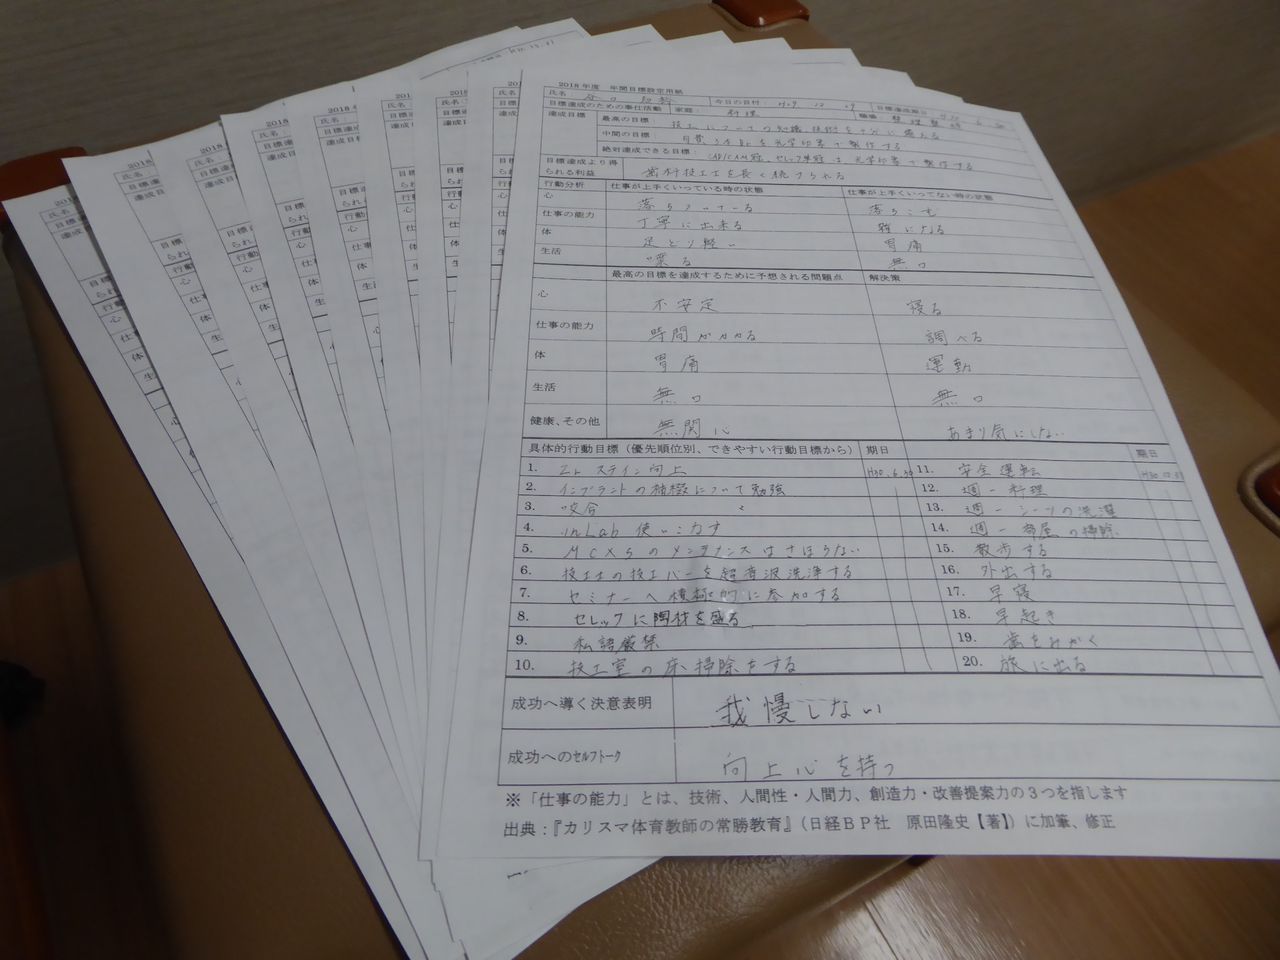 2018年度 年間目標設定用紙
氏名: 今日の日付: H29. 12. 29 目標達成期日: H30. 6. 30
目標達成のための奉仕活動 家庭: 料理 職場: 整理整頓
達成目標 最高の目標: 技工についての知識技術を十分に備える
中間の目標: 自費、3本Brを光学印象で製作する
絶対達成できる目標: CAD/CAM冠、セレック単冠は光学印象で製作する
目標達成より得られる利益 歯科技工士を長く続けられる
行動分析 仕事が上手くいっている時の状態 仕事が上手くいってない時の状態
心 落ちついている 落ちこむ
仕事の能力 丁寧に出来る 雑になる
体 足とり軽い 胃痛
生活 喋る 無口
最高の目標を達成するために予想される問題点 解決策
心 不安定 寝る
仕事の能力 時間がかかる 調べる
体 胃痛 運動
生活 無口 無口
健康、その他 無関心 あまり気にしない
具体的行動目標(優先順位別、できやすい行動目標から) 期日 期日
1. Zr ステイン向上 H30.6.30 11. 安全運転 H30.12.31
2. インプラントの補綴について勉強 12. 週一料理
3. 咬合 〃 13. 週一シーツの洗濯
4. inLab 使いこなす 14. 週一部屋の掃除
5. MCX5のメンテナンスはさぼらない 15. 散歩する
6. 技工士の技工バーを超音波洗浄する 16. 外出する
7. セミナーへ積極的に参加する 17. 早寝
8. セレックに陶材を盛る 18. 早起き
9. 私語厳禁 19. 歯をみがく
10. 技工室の床掃除をする 20. 旅に出る
成功へ導く決意表明 我慢しない
成功へのセルフトーク 向上心を持つ
※「仕事の能力」とは、技術、人間性・人間力、創造力・改善提案力の3つを指します
出典:『カリスマ体育教師の常勝教育』(日経BP社 原田隆史【著】)に加筆、修正